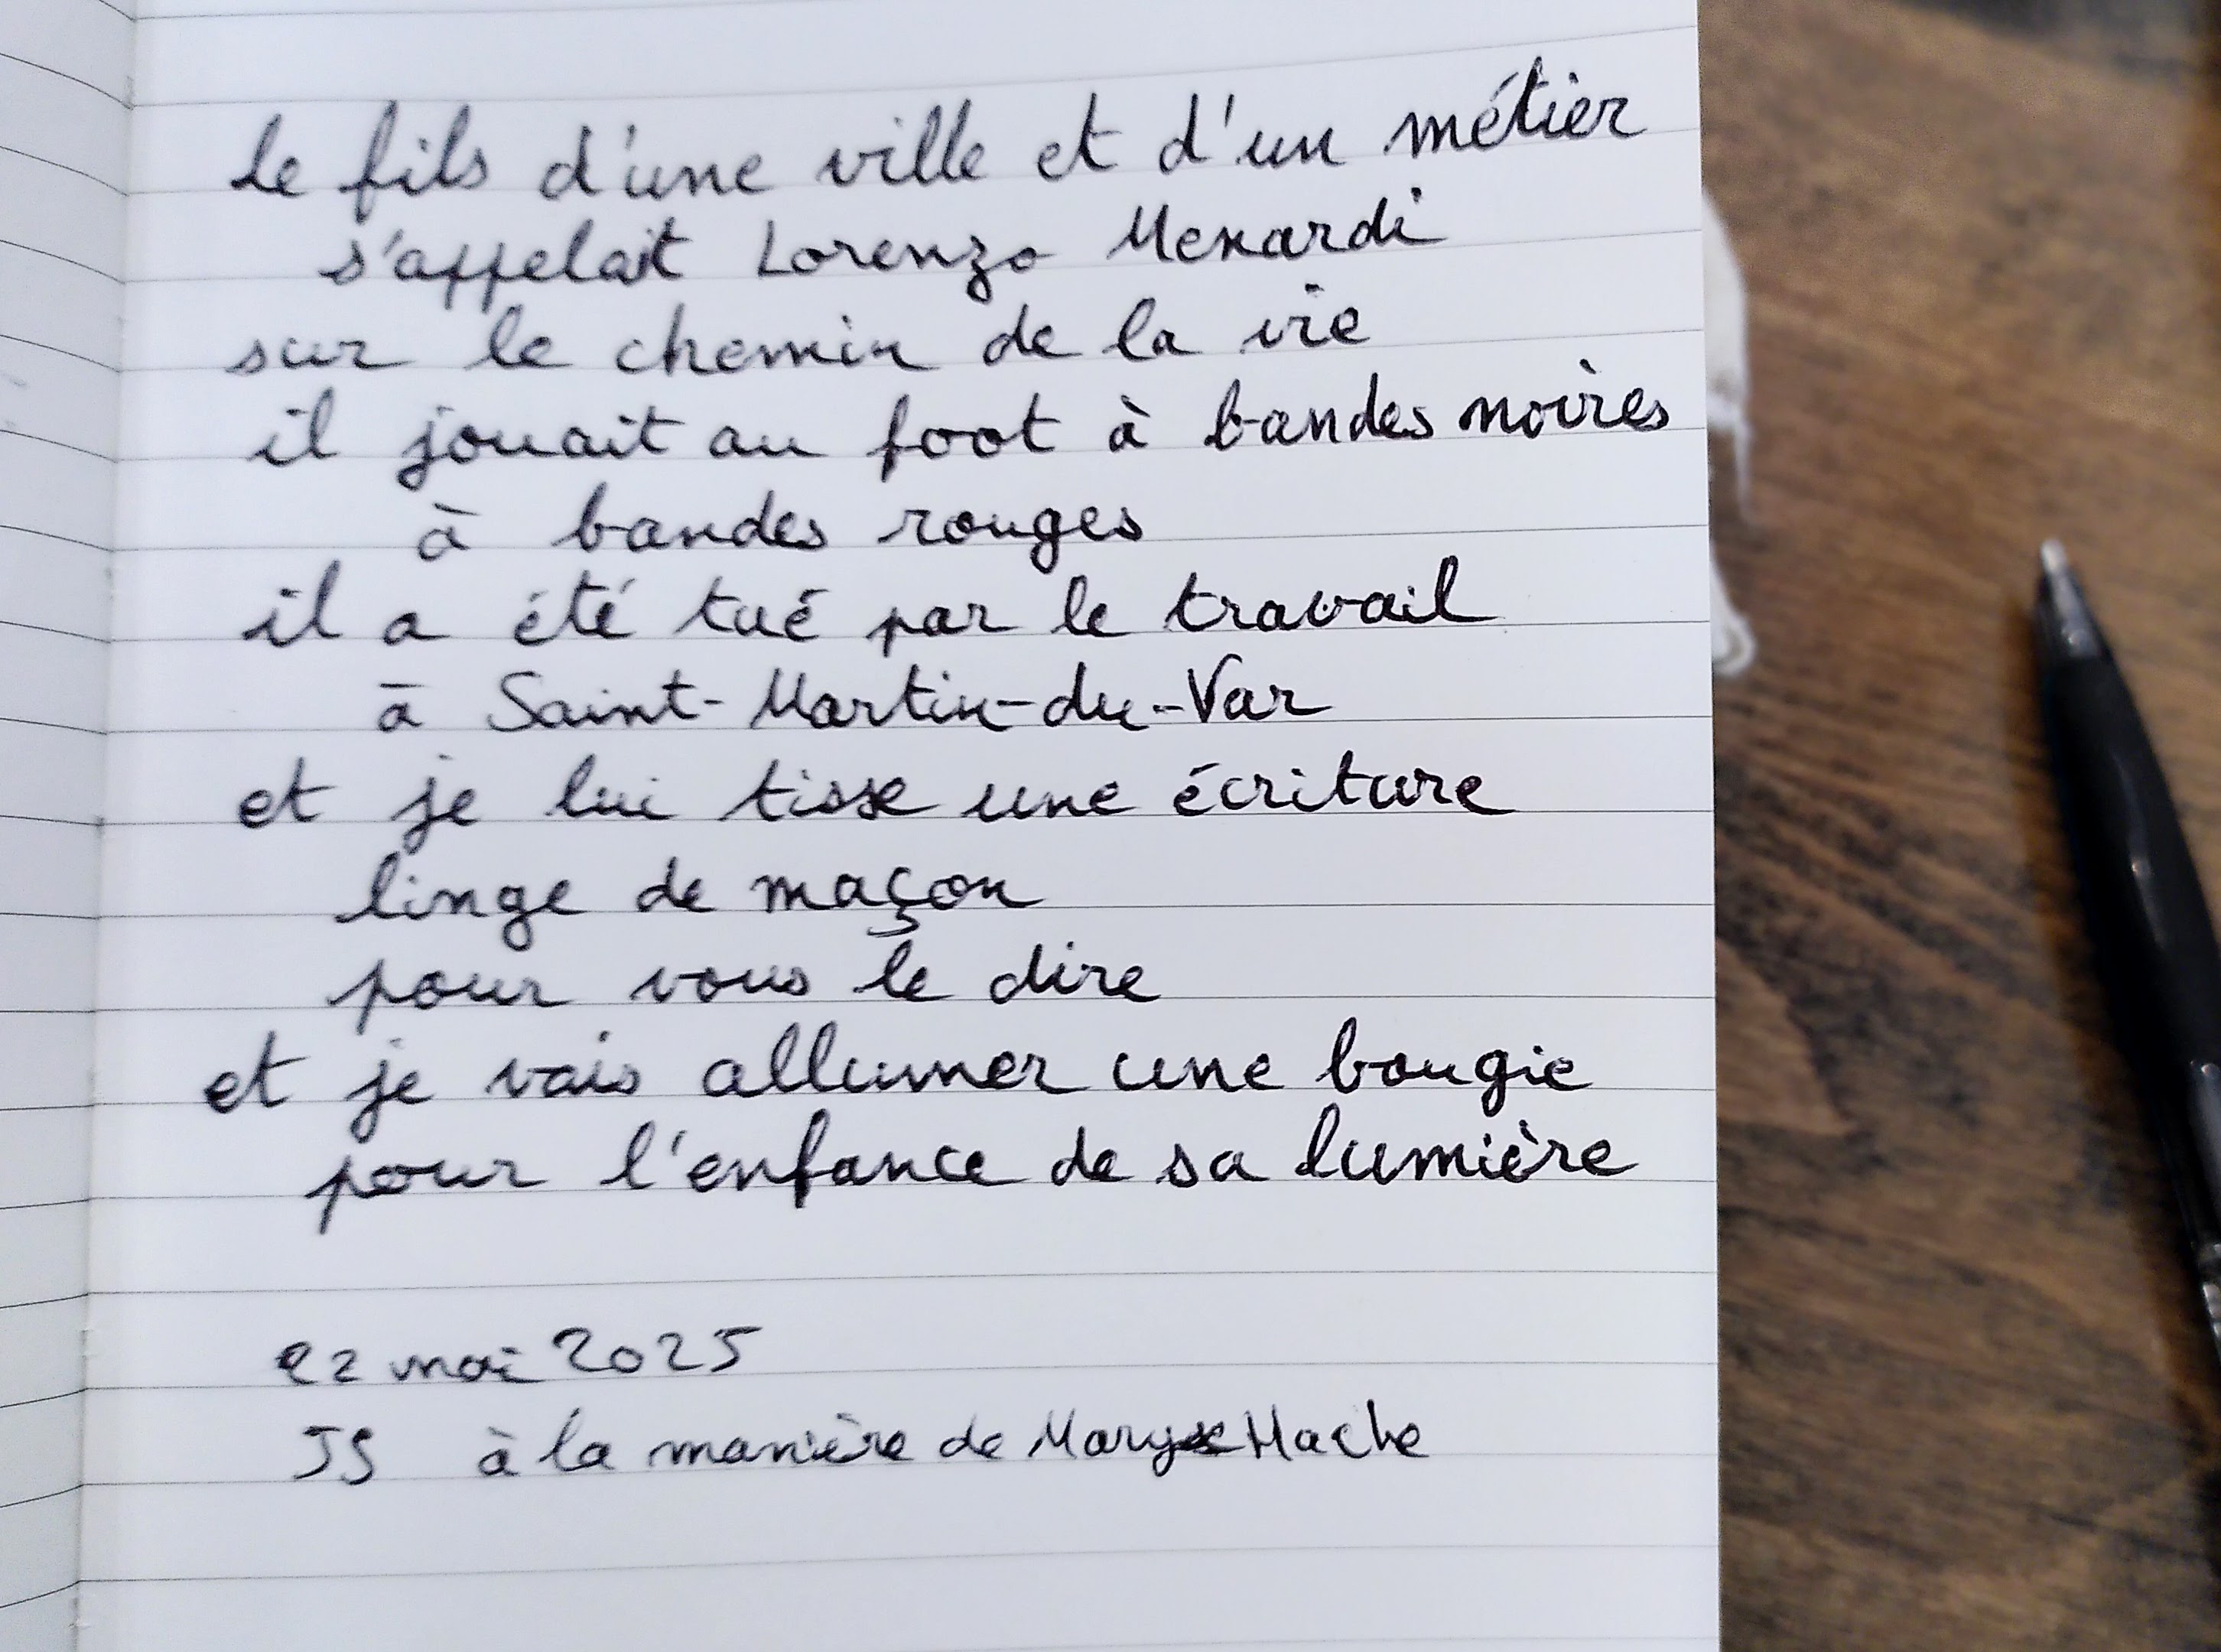 le fils d'une ville et d'un métier
s'appelait Lorenzo Menardi
sur le chemin de la vie
il jouait au foot à bandes noires
à bandes rouges
il a été tué par le travail
à Saint-Martin-du-Var
et je lui tisse une écriture
linge de maçon
pour vous le dire
et je vais allumer une bougie
pour l'enfance de sa lumière
22 mai 2025
JS à la manière de Maryse Hache